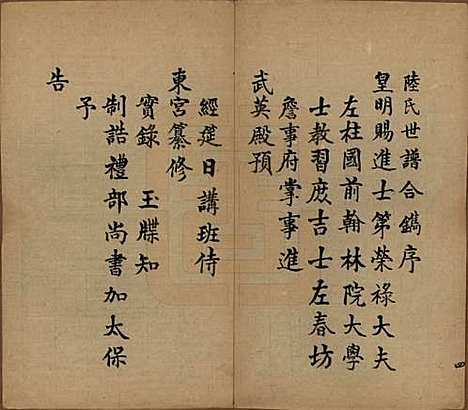 陸氏世譜合鐫序
皇明賜進士第榮祿大夫
左柱國前翰林院大學
士教習庶吉士左春坊
詹事府掌事進
武英殿預
經筵日講班侍
東宮纂修
實錄　玉牒知
制誥禮部尚書加太保
予
告
四